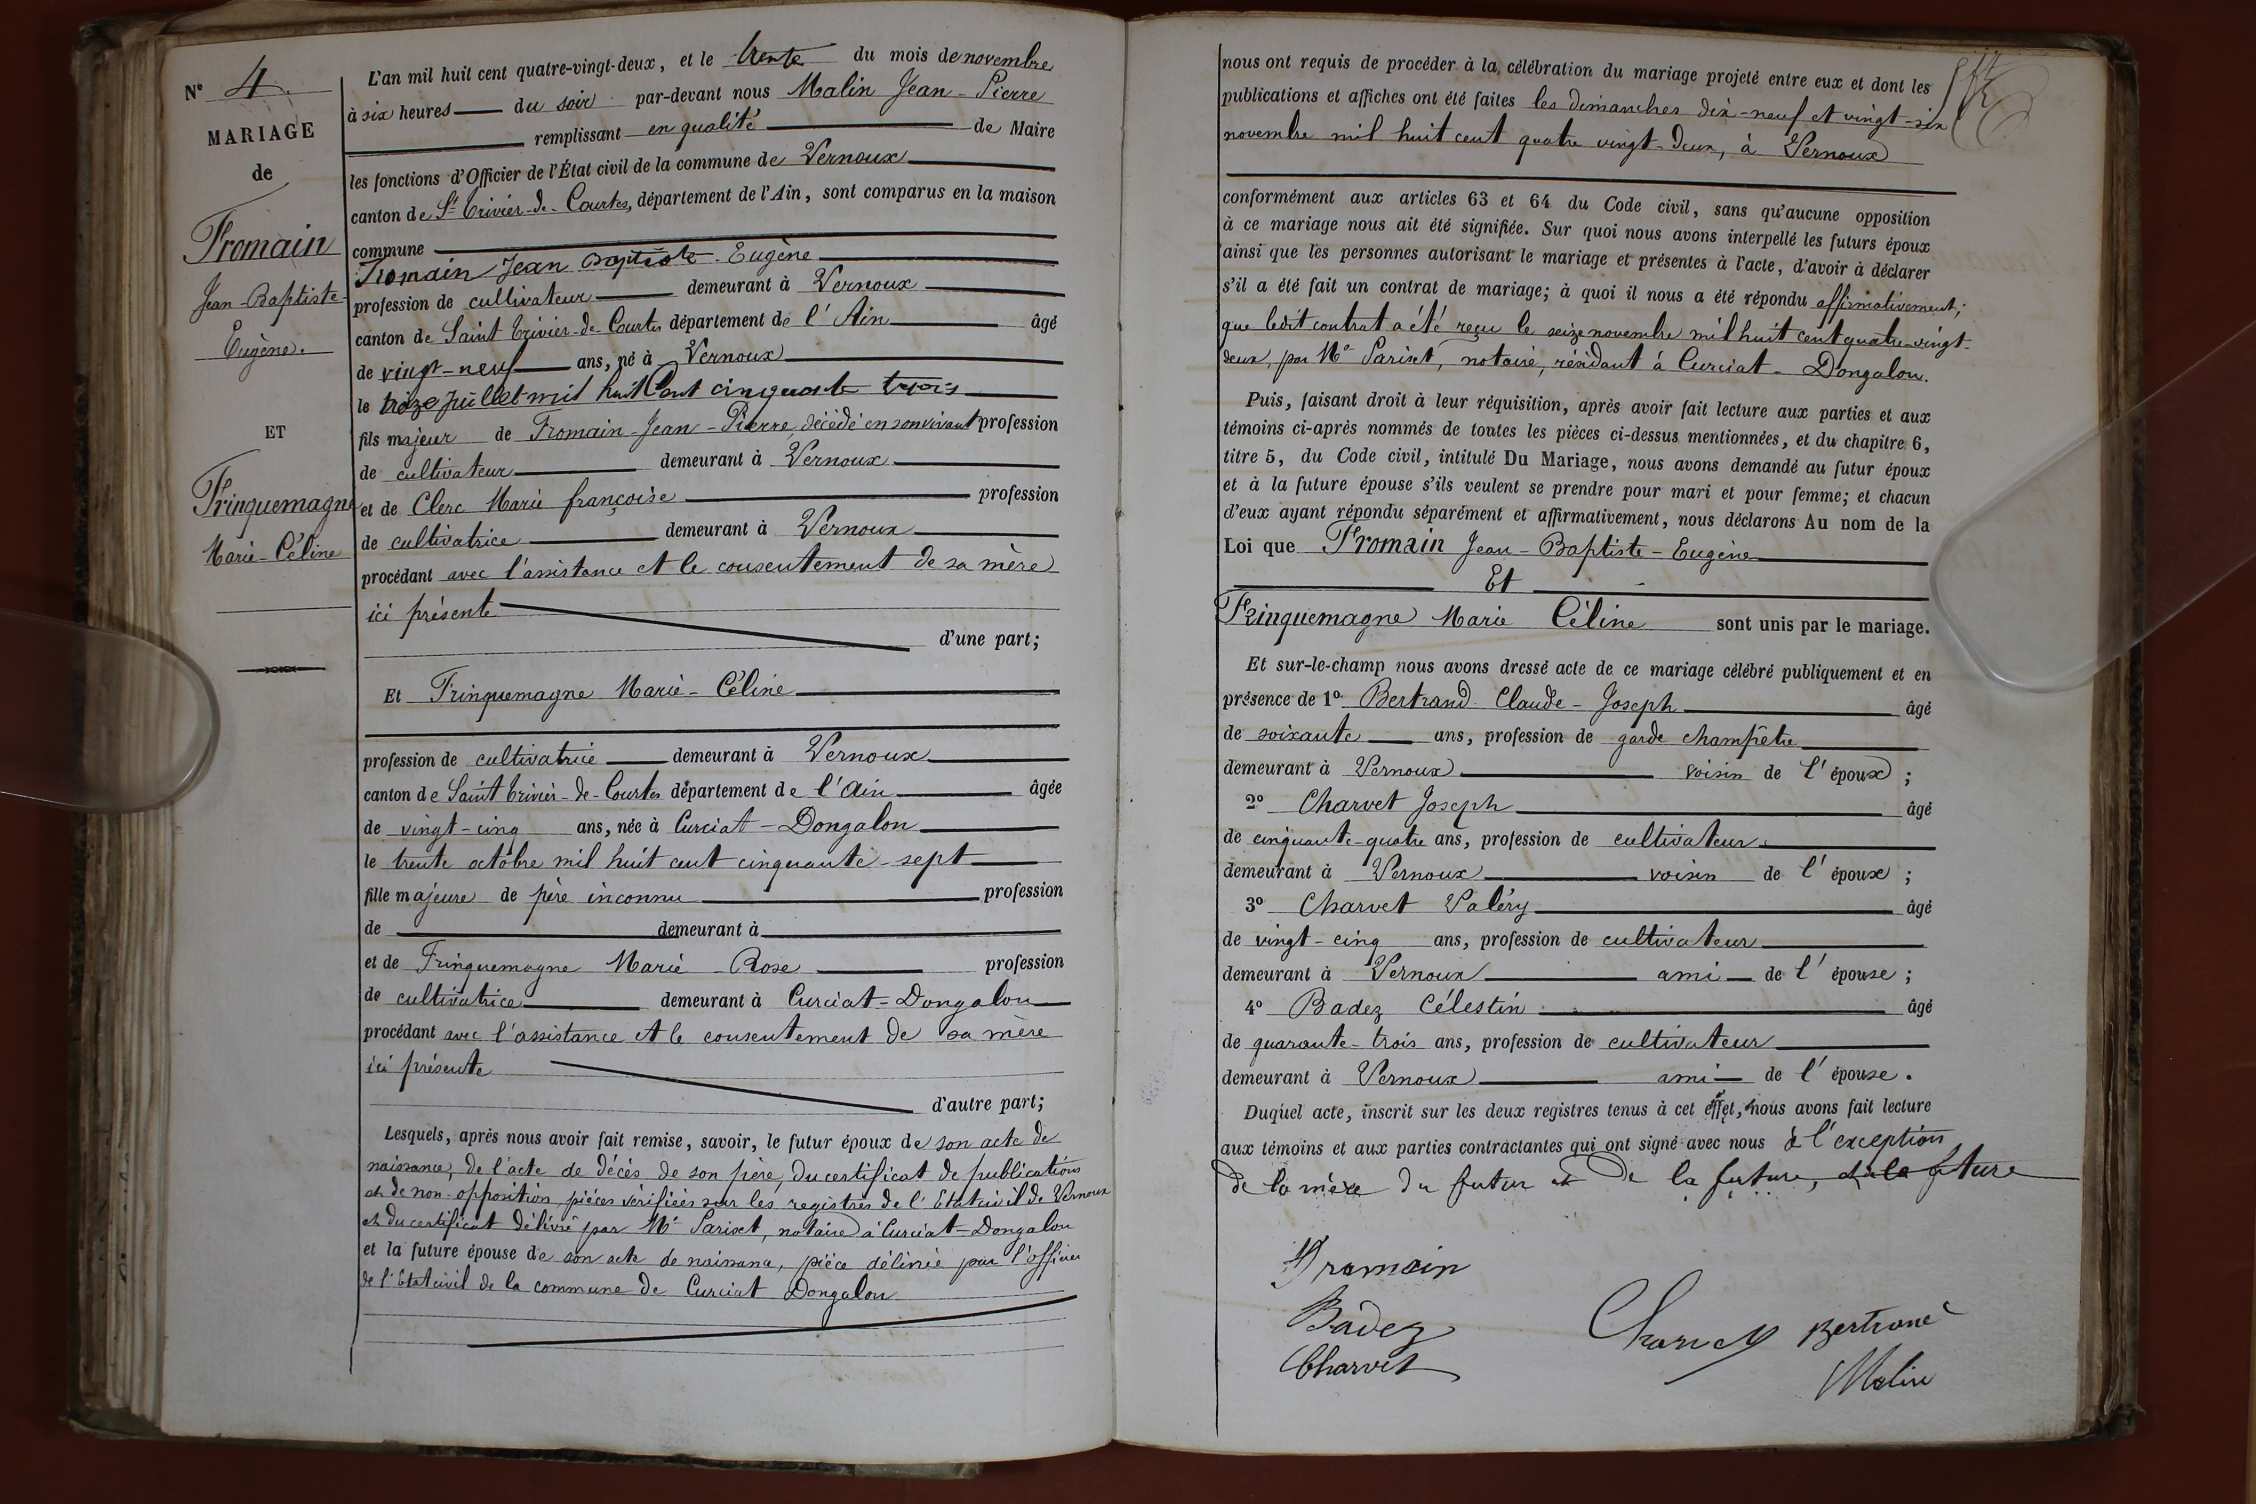 N° 4.
MARIAGE
de
Fromain
Jean-Baptiste-
Eugène.
ET
Frinquemagne
Marie-Céline
L'an mil huit cent quatre-vingt-deux, et le trente du mois de novembre
à six heures du soir par-devant nous Malin Jean-Pierre
remplissant en qualité de Maire
les fonctions d'Officier de l'État civil de la commune de Vernoux
canton de St Trivier-de-Courtes, département de l'Ain, sont comparus en la maison
commune
Fromain Jean Baptiste-Eugène
profession de cultivateur demeurant à Vernoux
canton de Saint Trivier-de-Courtes département de l'Ain âgé
de vingt-neuf ans, né à Vernoux
le treize juillet mil huit Cent cinquante trois
fils majeur de Fromain-Jean-Pierre, décédé en son vivant profession
de cultivateur demeurant à Vernoux
et de Clerc Marie françoise profession
de cultivatrice demeurant à Vernoux
procédant avec l'assistance et le consentement de sa mère
ici présente
d'une part;
Et Frinquemagne Marie-Céline
profession de cultivatrice demeurant à Vernoux
canton de Saint Trivier-de-Courtes département de l'Ain âgée
de vingt-cinq ans, née à Curciat-Dongalon
le trente octobre mil huit cent cinquante-sept
fille majeure de père inconnu profession
de demeurant à
et de Frinquemagne Marie-Rose profession
de cultivatrice demeurant à Curciat-Dongalon
procédant avec l'assistance et le consentement de sa mère
ici présente
d'autre part;
Lesquels, après nous avoir fait remise, savoir, le futur époux de son acte de
naissance, de l'acte de décès de son père, du certificat de publications
et de non-opposition, pièces vérifiées sur les registres de l'Etat civil de Vernoux
et du certificat délivré par Me Pariset, notaire à Curciat-Dongalon
et la future épouse de son acte de naissance, pièce délivrée par l'officier
de l'Etat civil de la commune de Curciat Dongalon
nous ont requis de procéder à la célébration du mariage projeté entre eux et dont les
publications et affiches ont été faites les dimanches dix-neuf et vingt-six
novembre mil huit cent quatre vingt-deux, à Vernoux
conformément aux articles 63 et 64 du Code civil, sans qu'aucune opposition
à ce mariage nous ait été signifiée. Sur quoi nous avons interpellé les futurs époux
ainsi que les personnes autorisant le mariage et présentes à l'acte, d'avoir à déclarer
s'il a été fait un contrat de mariage; à quoi il nous a été répondu affirmativement;
que ledit contrat a été reçu le seize novembre mil huit cent quatre-vingt-
deux, par Me Pariset, notaire, résidant à Curciat-Dongalon.
Puis, faisant droit à leur réquisition, après avoir fait lecture aux parties et aux
témoins ci-après nommés de toutes les pièces ci-dessus mentionnées, et du chapitre 6,
titre 5, du Code civil, intitulé Du Mariage, nous avons demandé au futur époux
et à la future épouse s'ils veulent se prendre pour mari et pour femme; et chacun
d'eux ayant répondu séparément et affirmativement, nous déclarons Au nom de la
Loi que Fromain Jean-Baptiste-Eugène
Et
Frinquemagne Marie Céline sont unis par le mariage.
Et sur-le-champ nous avons dressé acte de ce mariage célébré publiquement et en
présence de 1° Bertrand Claude-Joseph âgé
de soixante ans, profession de garde champêtre
demeurant à Vernoux voisin de l'époux;
2° Charvet Joseph âgé
de cinquante-quatre ans, profession de cultivateur.
demeurant à Vernoux voisin de l'époux;
3° Charvet Valéry âgé
de vingt-cinq ans, profession de cultivateur
demeurant à Vernoux ami de l'épouse;
4° Badez Célestin âgé
de quarante-trois ans, profession de cultivateur
demeurant à Vernoux ami de l'épouse.
Duquel acte, inscrit sur les deux registres tenus à cet effet, nous avons fait lecture
aux témoins et aux parties contractantes qui ont signé avec nous à l'exception
de la mère du futur et de la future, de la future
Fromain
Badez
Charvet
Charvet
Bertrand
Malin